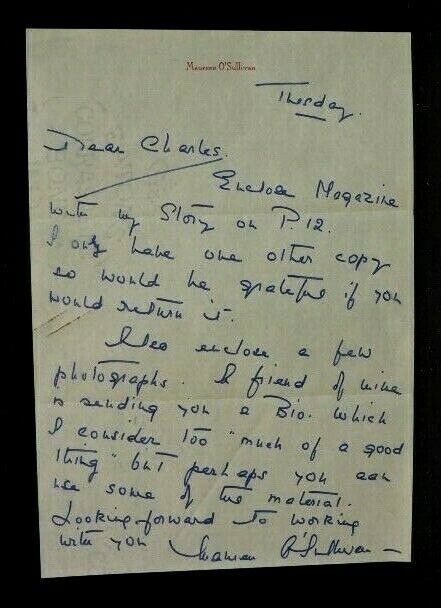 Maureen O'Sullivan
Tuesday.
Dear Charles.
Enclose Magazine
with my Story on P.12.
I only have one other copy
so would be grateful if you
would return it.
Also enclose a few
photographs. A friend of mine
is sending you a Bio. which
I consider too "much of a good
thing" but perhaps you can
use some of the material.
Looking forward to working
with you Maureen O'Sullivan —